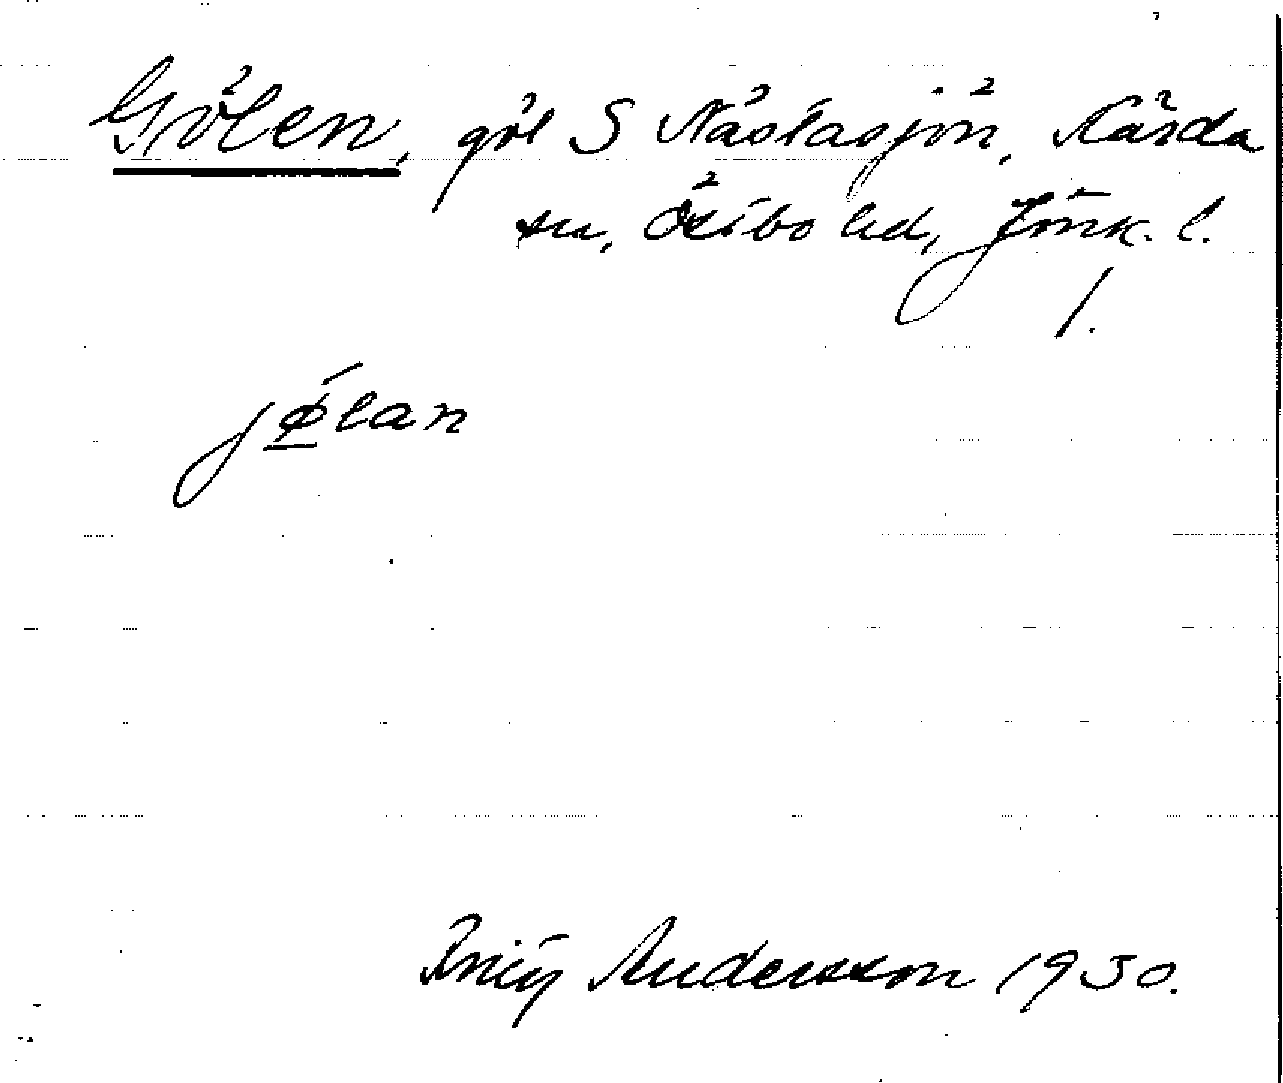 Gölen, göl S Nästasjön, Kärda
sn, Östbo hd, Jönk. l.
1.
jǿ̲lan
Andersson 1930.